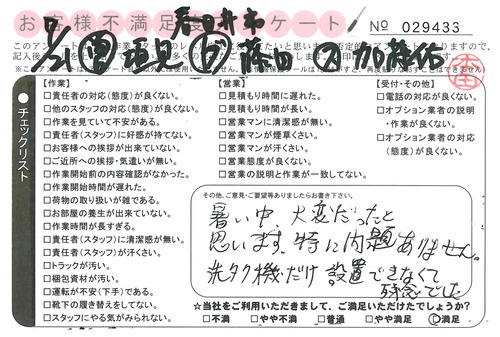 お客様不満足度アンケート
春日井市
№ 029433
【作業】
□責任者の対応(態度)が良くない。
□他のスタッフの対応(態度)が良くない。
□作業を見ていて不安がある。
□責任者(スタッフ)に好感が持てない。
□お客様への挨拶が出来ていない。
□ご近所への挨拶・気遣いが無い。
□作業開始前の内容確認がなかった。
□作業開始時間が遅れた。
□荷物の取り扱いが雑である。
□お部屋の養生が出来ていない。
□作業時間が長すぎる。
□責任者(スタッフ)に清潔感が無い。
□責任者(スタッフ)が汗くさい。
□トラックが汚い。
□梱包資材が汚い。
□運転が不安(下手)である。
□靴下の履き替えをしてない。
□スタッフにやる気がみられない。
【営業】
□見積もり時間に遅れた。
□見積もり時間が長い。
□営業マンに清潔感が無い。
□営業マンが煙草くさい。
□営業マンが汗くさい。
□営業態度が良くない。
□営業の説明と作業が一致してない。
【受付・その他】
□電話の対応が良くない。
□オプション業者の説明
・作業が良くない。
□オプション業者の対応
(態度)が良くない。
チェックリスト
その他、ご意見・ご要望等ありましたらお書き下さい。
暑い中、大変だったと
思います。特に問題ありません。
洗タク機だけ設置できなくて
残念でした
☆当社をご利用いただきまして、ご満足いただけたでしょうか?
□不満 □やや不満 □普通 □やや満足 □満足